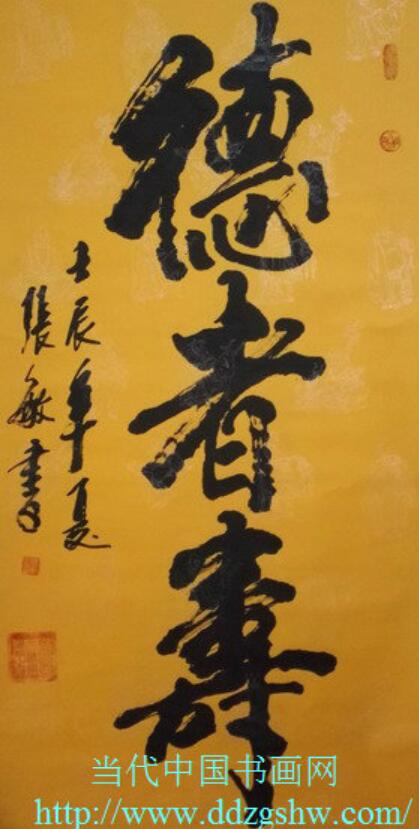 德者壽
壬辰年夏
張敏書
当代中国书画网
http://www.ddzgshw.com/